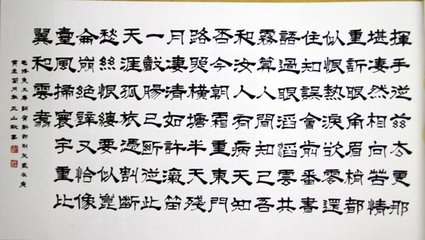 揮手從兹去更那
堪凄然相向苦情
重訴眼角眉梢都
似恨熱淚欲零還
住知誤會前番書
語過眼滔滔雲共
霧算人間知己吾
和汝人有病天知
否今朝霜重東門
路照橫塘半天殘
月凄清如許汽笛
一聲腸已斷從此
天涯孤旅憑割斷
愁絲恨縷要似崑
侖崩絕壁又恰像
臺風掃寰宇重比
翼和雲翥
毛澤東主席詞賀新郎別友